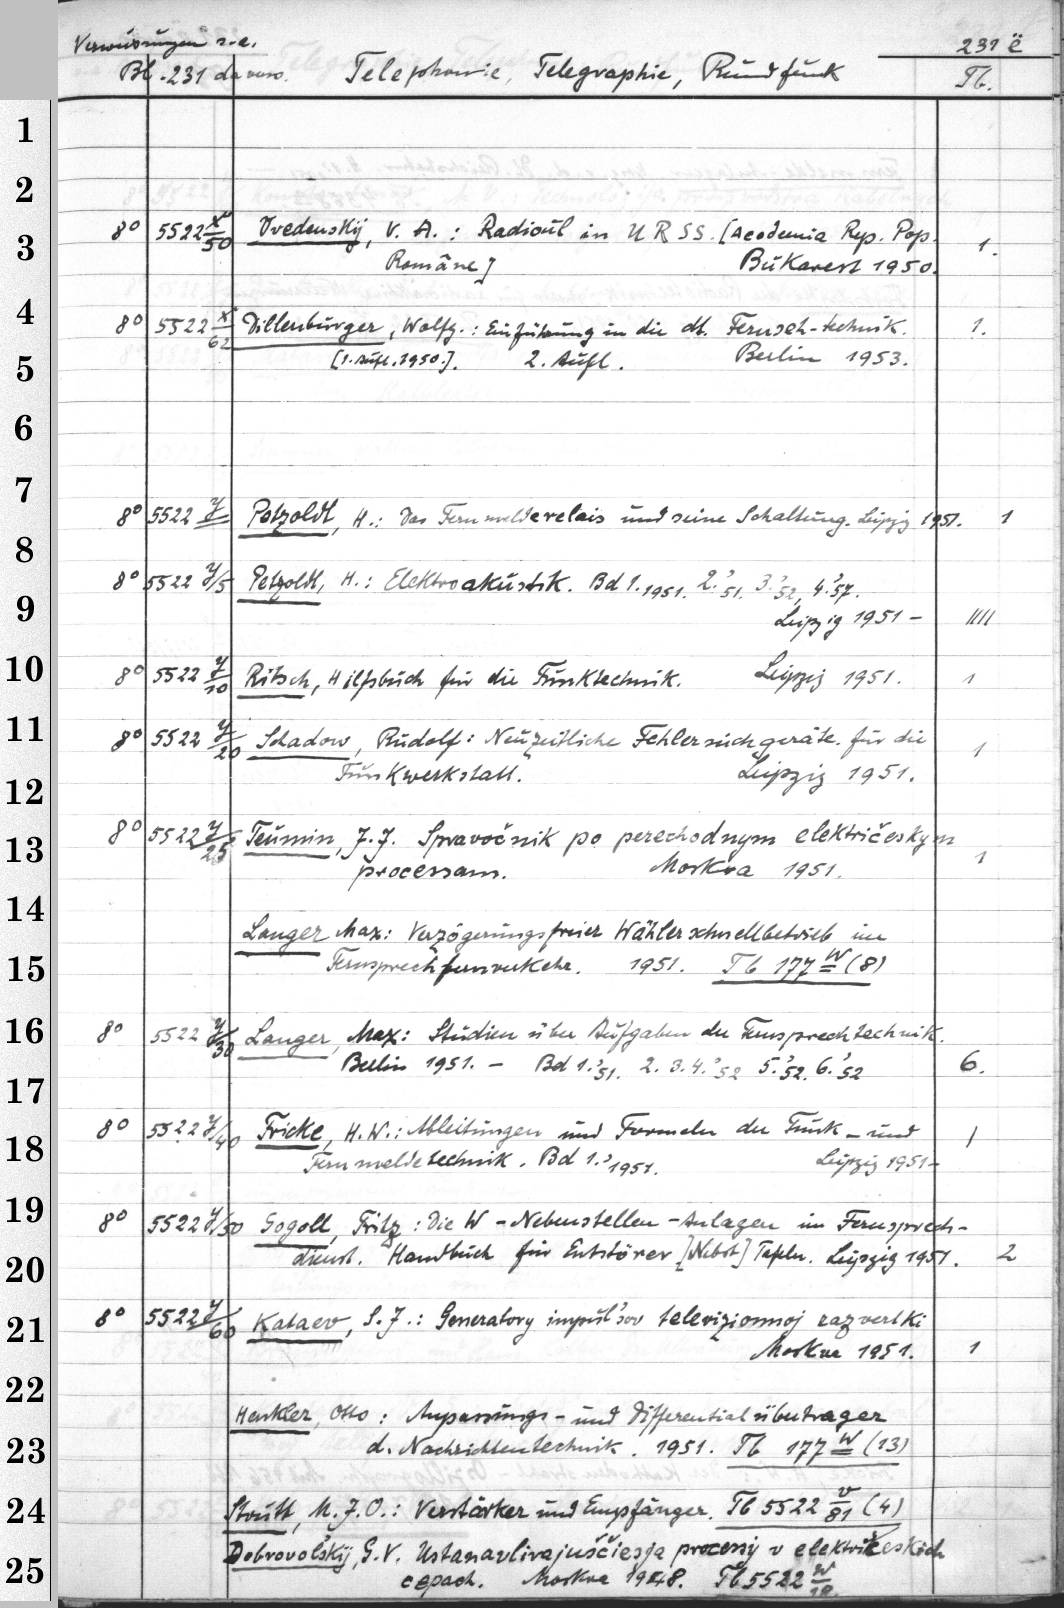 Verweisungen s. a. 231 ë
Bl. 231 da verso. Telephonie, Telegraphie, Rundfunk Tb.
1
2
8° 5522 x/50 Vvedenskij, V. A.: Radioul in URSS. [Academia Rep. Pop.
3 1.
Române] Bukarest 1950.
4 8° 5522 x/62 Dillenburger, Wolfg.: Einführung in die dt. Fernseh-technik. 1.
5 [1. Aufl. 1950.]. 2. Aufl. Berlin 1953.
6
7
8° 5522 y Petzoldt, H.: Das Fernmelderelais und seine Schaltung. Leipzig 1951. 1
8
8° 5522 y/5 Petzoldt, H.: Elektroakustik. Bd 1. 1951. 2.'51. 3.'52, 4.'57.
9 Leipzig 1951 – IIII
10 8° 5522 y/10 Ritsch, Hilfsbuch für die Funktechnik. Leipzig 1951. 1
11 8° 5522 y/20 Schadow, Rudolf: Neuzeitliche Fehlersuchgeräte für die 1
12 Funkwerkstatt. Leipzig 1951.
8° 5522 y/25 Teumin, J. J. Spravočnik po perechodnym električeskym
13 1
processam. Moskva 1951.
14
Langer Max: Verzögerungsfreier Wählerschnellbetrieb im
15 Fernsprechfernverkehr. 1951. Tb 177 W (8)
16 8° 5522 y/30 Langer, Max: Studien über Aufgaben der Fernsprechtechnik.
Berlin 1951. – Bd 1.'51. 2. 3. 4.'52 5.'52. 6.'52 6.
17
18 8° 5522 y/40 Fricke, H. W.: Ableitungen und Formeln der Funk – und 1
Fernmeldetechnik. Bd 1.'1951. Leipzig 1951–
19 8° 5522 y/50 Gogoll, Fritz: Die W – Nebenstellen – Anlagen im Fernsprech-
20 dienst. Handbuch für Entstörer [Nebst] Tafeln. Leipzig 1951. 2
21 8° 5522 y/60 Kataev, S. J.: Generatory impul'sov televizionnoj razvertki
Moskva 1951. 1
22
Henkler, Otto: Anpassungs – und Differentialübertrager
23 d. Nachrichtentechnik. 1951. Tb 177 W (13)
24 Strutt, M. J. O.: Verstärker und Empfänger. Tb 5522 v/81 (4)
Dobrovol'skij, G. V. Ustanavlivajuščiesja processy v električeskich
25 cepach. Moskva 1948. Tb 5522 W/18.